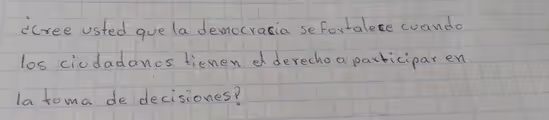 ¿cree usted que la democracia se fortalece cuando
los ciudadanos tienen el derecho a participar en
la toma de decisiones?